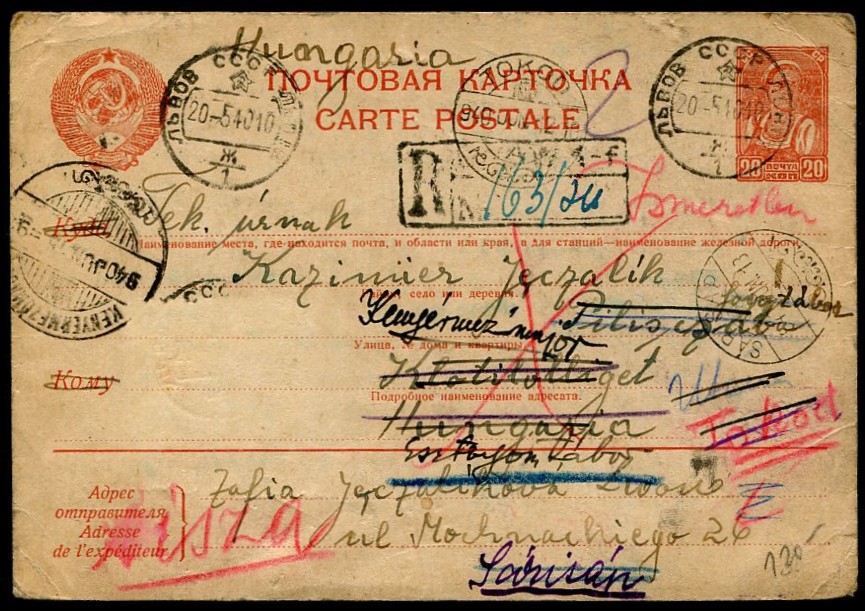 Hungaria
ПОЧТОВАЯ КАРТОЧКА
CARTE POSTALE
ЛЬВОВ СССР
20-5 40 10
Ж
1
ЛЬВОВ СССР
20-5 40 10
Ж
1
ПОЧТА
20 КОП 20
TOKOD
R
163/
Ismeretlen
Куда
Tek. úrnak
Наименование места, где находится почта, и области или края, а для станций—наименование железной дороги
Kazimier Jęczalik
село или деревня
Kenyérmező major
Piliscsaba
Улица, № дома и квартиры
Кому
Klotildliget
Подробное наименование адресата
Hungaria
Tokod
Esztergom Tábor
KENYERMEZŐ
SÁRISÁP
Адрес
отправителя
Adresse
de l'expéditeur
Zofia Jęczalikowa Lwów
ul Mochnackiego 26
Vissza
Sárisáp
120